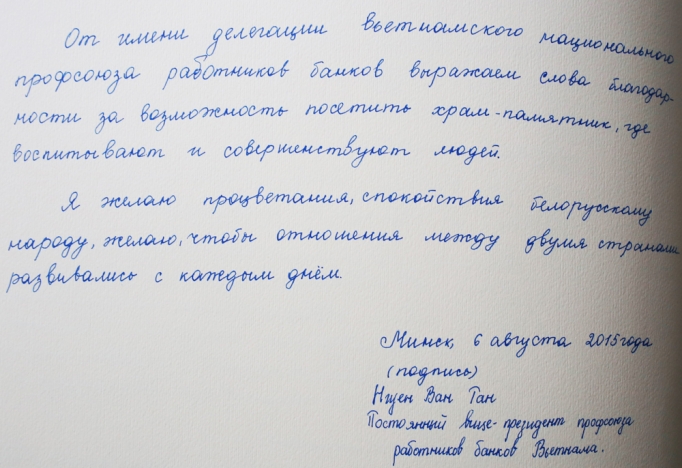 От имени делегации вьетнамского национального
профсоюза работников банков выражаем слова благодар-
ности за возможность посетить храм-памятник, где
воспитывают и совершенствуют людей.
Я желаю процветания, спокойствия белорусскому
народу, желаю, чтобы отношения между двумя странами
развивались с каждым днём.
Минск, 6 августа 2015 года
(подпись)
Нгуен Ван Тан
Постоянный вице-президент профсоюза
работников банков Вьетнама.